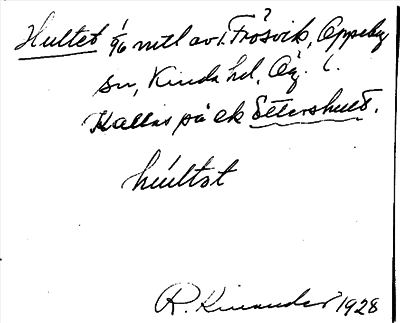 Hultet 1/6 mtl av 1. Frösvik, Oppeby
sn, Kinda hd, Ög. l.
Kallas på ek Ettershult.
húltət
R. Kinander 1928